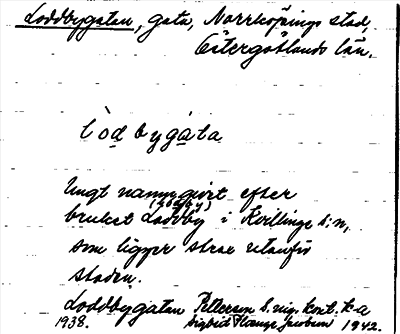 Loddbygatan, gata, Norrköpings stad,
Östergötlands län.
lòdbygàta
Ungt namn, givet efter
(lòdby)
bruket Loddby i Kvillinge s:n,
som ligger strax utanför
staden.
Loddbygatan Pettersson
1938. Sigrid 1942.